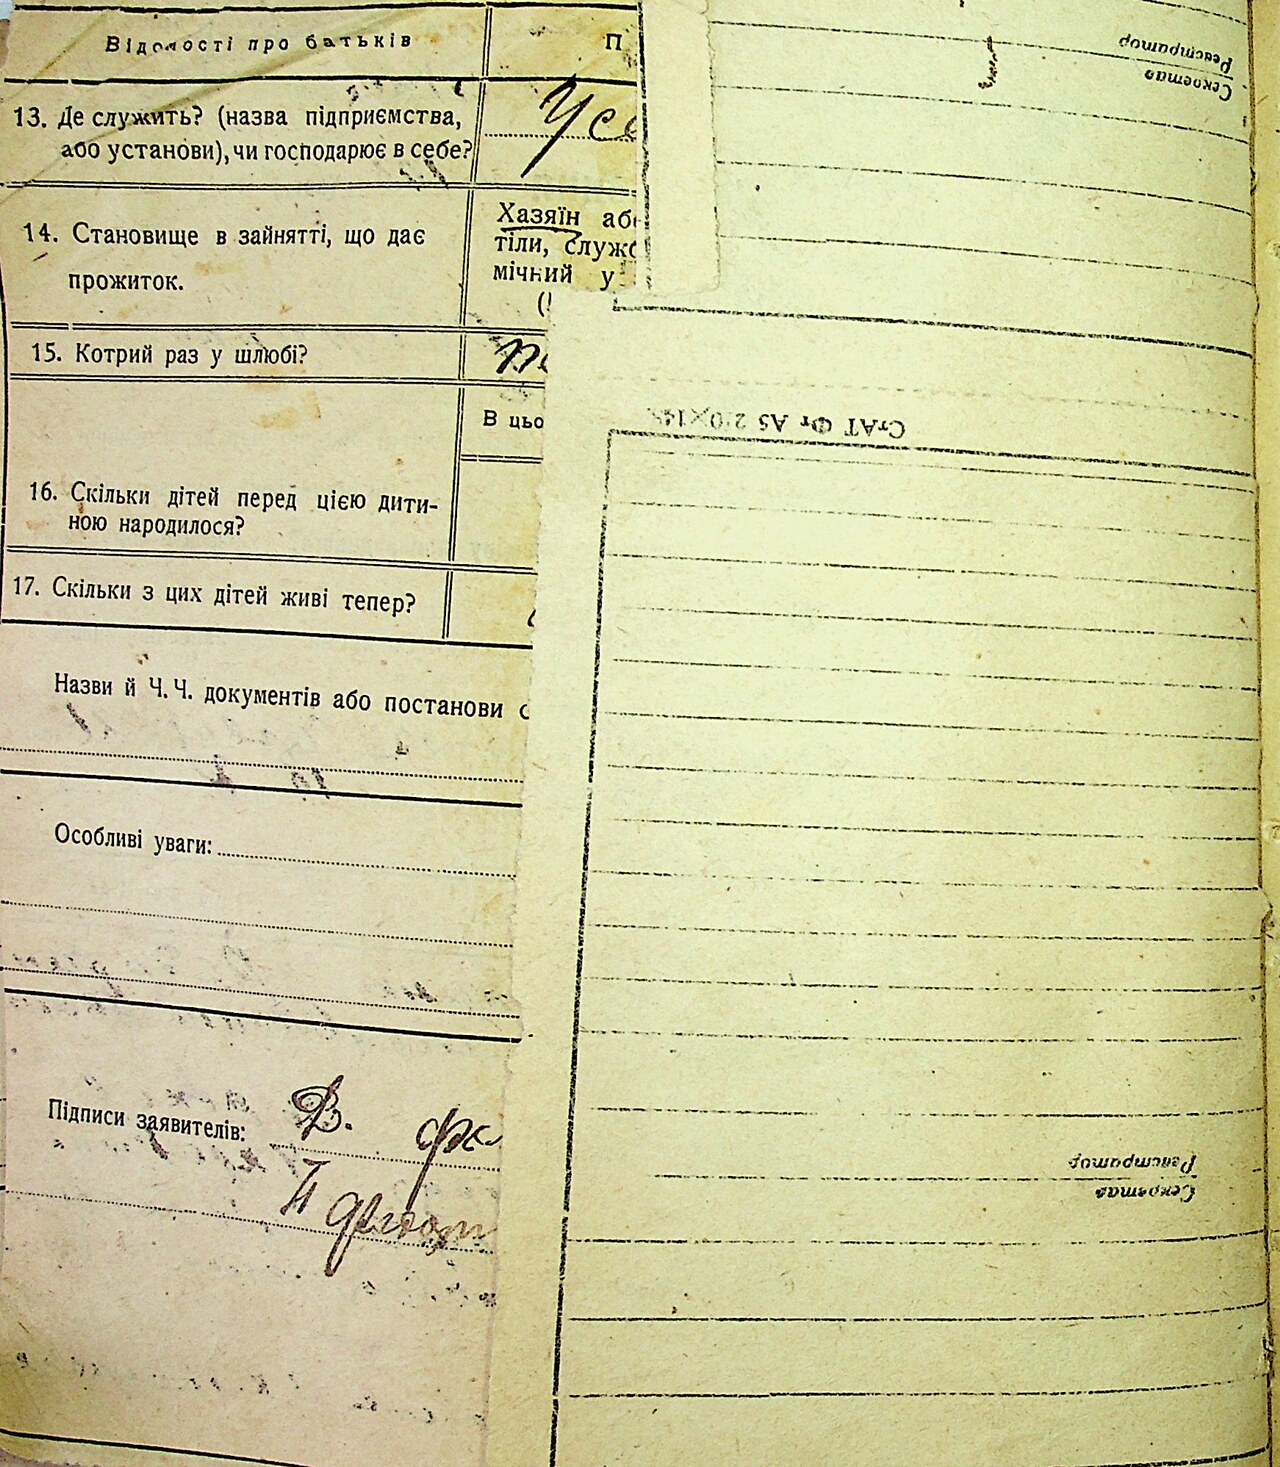 Відомості про батьків
П
13. Де служить? (назва підприємства,
або установи), чи господарює в себе?
Усе
14. Становище в зайнятті, що дає
прожиток.
Хазяїн або
тіли, служб
мічний у
15. Котрий раз у шлюбі?
В цьо
16. Скільки дітей перед цією дити-
ною народилося?
17. Скільки з цих дітей живі тепер?
Назви й Ч. Ч. документів або постанови с
Особливі уваги:
Підписи заявителів: В.
Реєстратор
Секретар
СгАТ Фг А5 210×148
Реєстратор
Секретар